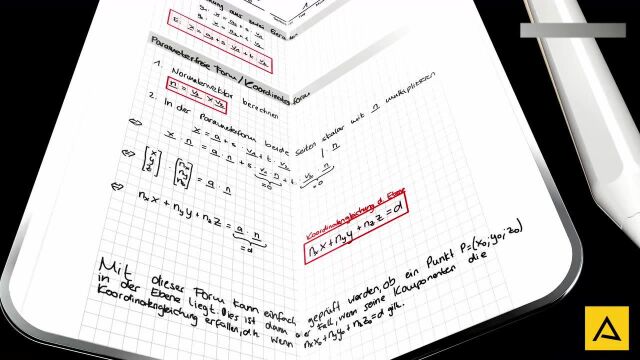 E: x = a + s · v₁ + t · v₂
Parameterfreie Form / Koordinatenform
1. Normalenvektor berechnen
n = v₁ × v₂
2. In der Parameterform beide Seiten skalar mit n multiplizieren
x = a + s · v₁ + t · v₂ | · n
⇔ x · n = a · n + s · v₁ · n + t · v₂ · n
=0 =0
⇔ [x y z] · [nₓ nᵧ n_z] = a · n
⇔ nₓx + nᵧy + n_z z = a · n
=d
Koordinatengleichung d. Ebene
nₓx + nᵧy + n_z z = d
Mit dieser Form kann einfach geprüft werden, ob ein Punkt P=(x₀,y₀,z₀)
in der Ebene liegt. Dies ist dann der Fall, wenn seine Komponenten die
Koordinatengleichung erfüllen, d.h. wenn nₓx₀ + nᵧy₀ + n_z z₀ = d gilt.